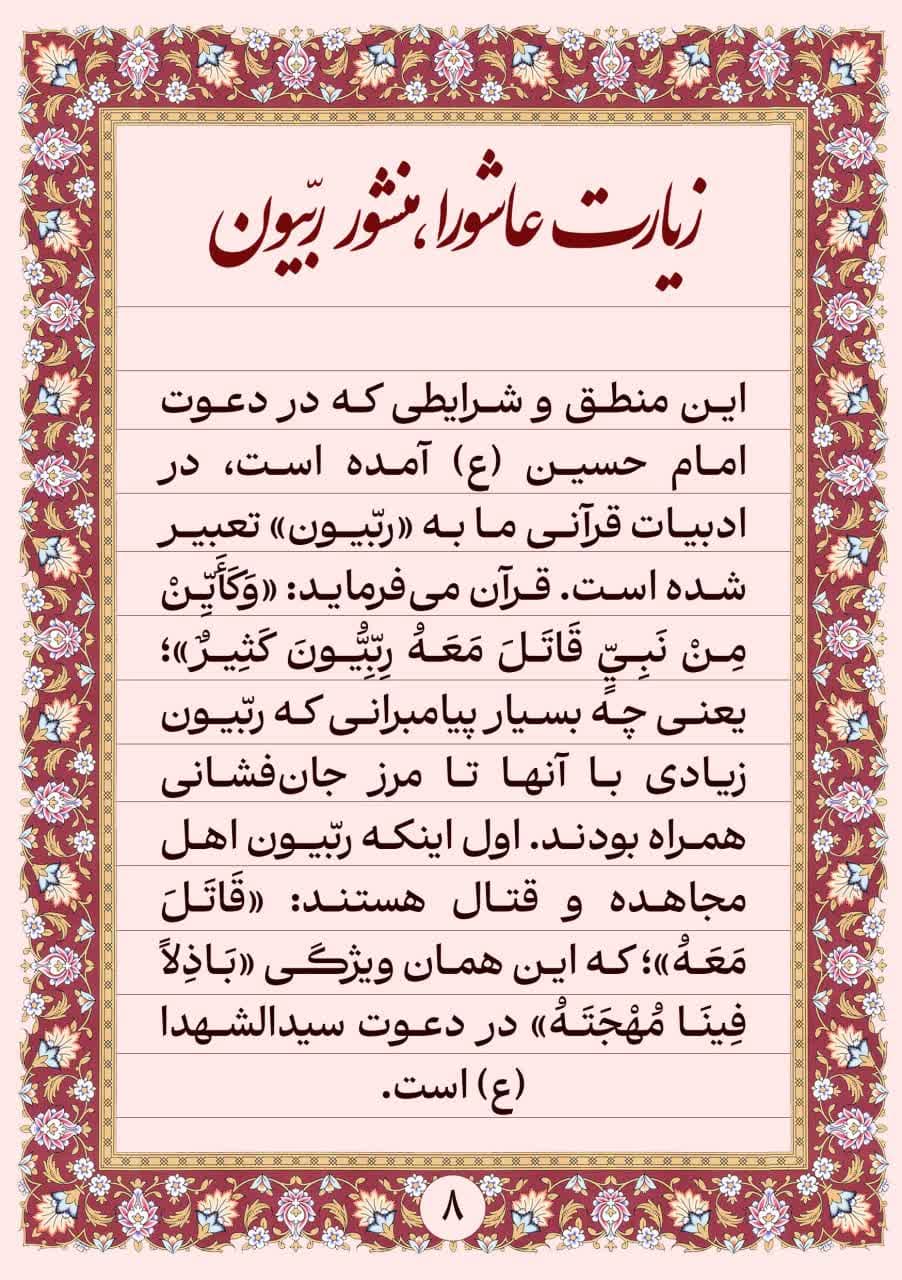 زیارت عاشورا، منشور ربّیون
این منطق و شرایطی که در دعوت
امام حسین (ع) آمده است، در
ادبیات قرآنی ما به «ربّیون» تعبیر
شده است. قرآن می‌فرماید: «وَكَأَيِّنْ
مِنْ نَبِيٍّ قَاتَلَ مَعَهُ رِبِّيُّونَ كَثِيرٌ»؛
یعنی چه بسیار پیامبرانی که ربّیون
زیادی با آنها تا مرز جان‌فشانی
همراه بودند. اول اینکه ربّیون اهل
مجاهده و قتال هستند: «قَاتَلَ
مَعَهُ»؛ که این همان ویژگی «بَاذِلاً
فِينَا مُهْجَتَهُ» در دعوت سیدالشهدا
(ع) است.
۸